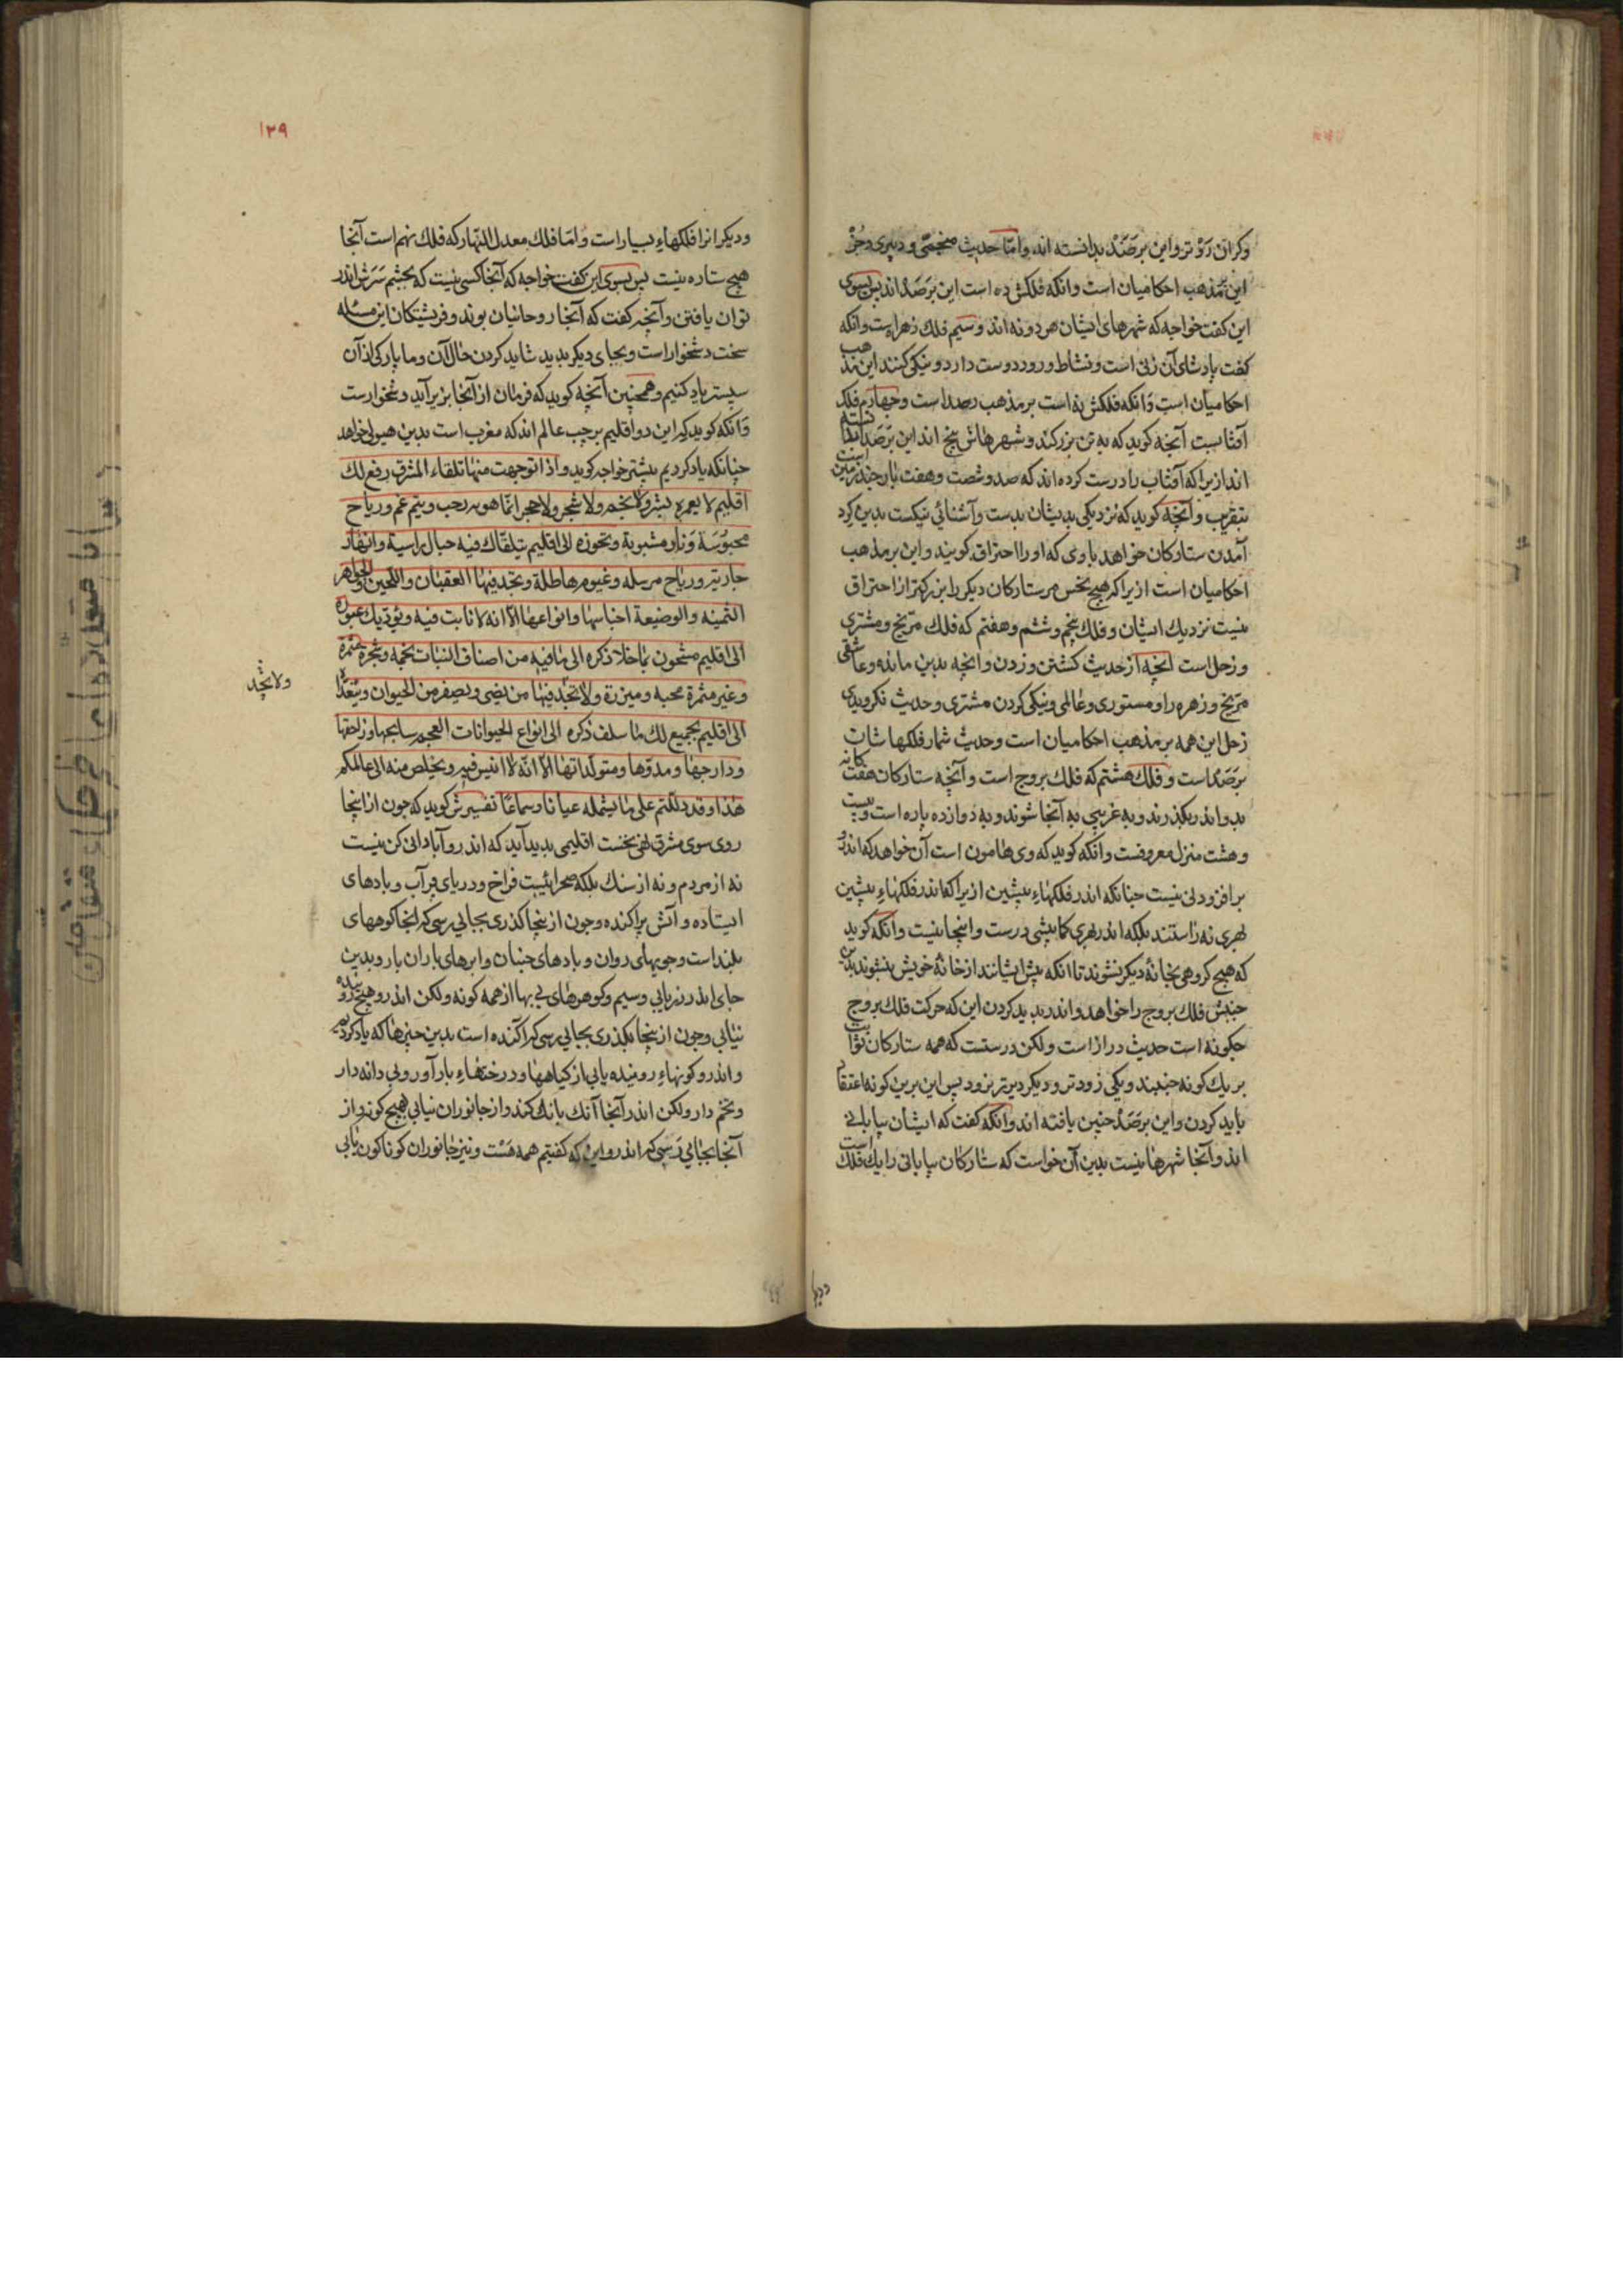 وکران رَوْ تر و این برصَدْ بدانسته اند و امّا حدیث منجمی و دبیری و جُزْ
این بمذهب احکامیان است و انکه فلکش ده است این برَصَد اند پس بسوی
این کفت خواجه که شهرهای ایشان هر دو نه اند و سیم فلك زهره است و انکه
کفت پادشای آن زنی است و نشاط و رود دوست دارد و نیکی کنند این مذهب
احکامیان است وَ انکه فلکش نه است بر مذهب رصد است و چهارم فلك
آفتابست آنچه کوید که به تن بزرکند و شهرهاش پنج اند این برَصَد
اند ازیرا که آفتاب را درست کرده اند که صد و شصت و هفت بار چند زمین است
بتقریب و آنچه کوید که نزدیکی بدیشان بدست و آشنائی نیکست بدین کرد
آمدن ستارکان خواهد باوی که او را احتراق کویند و این بر مذهب
احکامیان است ازیرا که هیچ نحس مر ستارکان دیکر را بزرکتر از احتراق
نیست نزدیك ایشان و فلك پنجم و ششم و هفتم که فلك مرّیخ و مشتری
و زحل است آنچه از حدیث کشتن و زدن و آنچه بدین ماند و عاشقی
مرّیخ و زهره را و مستوری و عالمی و نیکی کردن مشتری و حدیث نکرویدی
زحل این همه بر مذهب احکامیان است و حدیث شمار فلکها شان
برَصَد است و فلك هشتم که فلك بروج است و آنچه ستارکان هفت کانه
بدو اندر بکذرند و به غریبی به آنجا شوند و به دوازده پاره است و بیست
و هشت منزل معروفست و آنکه کوید که وی هامون است آن خواهد که اندرو
بر افزودنی نیست چنانکه اندر فلکهاءِ پیشین ازیرا که اندر فلکهاءِ پیشین
لهری نه راستند بلکه اندر لهری کما بیشی درست و اینجا نیست و آنکه کوید
که هیچ کروهی بخانهٔ دیکر نشوند تا انکه پیش ایشانند از خانهٔ خویش بنشوند بدین
جنبش فلك بروج را خواهد و اندر پدید کردن این که حرکت فلك بروج
چکونه است حدیث دراز است ولکن درستست که همه ستارکان ثوابت
بر یك کونه جنبند و یکی زودتر و دیکر دیرتر نرود پس این برین کونه اعتقاد
باید کردن و این برَصَد چنین یافته اند و انکه کفت که ایشان بیابانی
اند و آنجا شهرها نیست بدین آن خواست که ستارکان بیابانی را یك فلك است
ودیکر
١٢٩
و دیکرانرا فلکهاءِ بسیار است و امّا فلك معدل النّهار که فلك نهم است آنجا
هیچ ستاره نیست پس بسوی این کفت خواجه که آنجا کسی نیست که بچشم سَرَش اندر
توان یافتن و آنچه کفت که آنجا روحانیان بوند و فریشتکان این مسئله
سخت دشخوار است و بجای دیکر پدید شاید کردن حال آن و ما پارکی از آن
سپستر یاد کنیم و همچنین آنچه کوید که فرمان از آنجا بزیر آید دشخوارست
وَ آنکه کوید که این دو اقلیم بر چپ عالم اند که مغرب است بدین هیولی خواهد
چنانکه یاد کردیم پیشتر خواجه کوید و اذا توجهت منها تلقاء المشرق رفع لك
اقلیم لا یعمره بشر و لا نجم و لا شجر و لا حجر انّما هو بر رحب و یم غمر و ریاح
محبوُسَة وَ نار مشبوبة و تجوزه الی اقلیم تلقاك فیه جبال راسیة و انهار
جاریة و ریاح مرسله و غیوم هاطلة و تجد فیها العقیان و اللجین و الجواهر
الثمینه و الوضیعة اجناسها و انواعها الّا انه لا نابت فیه و یؤدّیك عبوره
الی اقلیم مشحون بما خلا ذکره الی ما فیه من اصناف النبات نجمه و شجره مثمرة
و غیر مثمرة محبه و مبزرة و لا تجد فیها من یضی و یصفر من الحیوان و یتعدّا
الی اقلیم یجمع لك ما سلف ذکره الی انواع الحیوانات العجم سابحها و زاحفها
و دارجها و مدوّمها و متولّداتها الّا انّه لا انیس فیه و یخلص منه الی عالمکم
هذا و قد دللتم علی ما یشمله عیانا و سماعًا تفسیرش کوید که چون از اینجا
روی سوی مشرق نهی نخست اقلیمی پدید آید که اندرو آبادانی کن نیست
نه از مردم و نه از سنك بلکه صحرائیست فراخ و دریای پر آب و بادهای
ایستاده و آتش پراکنده و چون از ینجا کذری بجایی رسی که آنجا کوههای
بلند است و جویهای روان و بادهای جنبان و ابرهای باران بار و بدین
جای اندر زر یابی و سیم و کوهرهای بی بها از همه کونه ولکن اندرو هیچ رونده
نیابی و چون از ینجا بکذری بجایی رسی که آکنده است بدین چیزها که یاد کردیم
و اندرو کونهاءِ روینده یابی از کیاهها و درختهاءِ بارآور و بی دانه دار
و تخم دار ولکن اندر آنجا آنك بانك کند و از جانوران نیابی هیچ کونه و از
آنجا بجایی رَسی که اندرو این که کفتیم همه هَسْت و نیز جانوران کوناکون یابی
ولا تجد